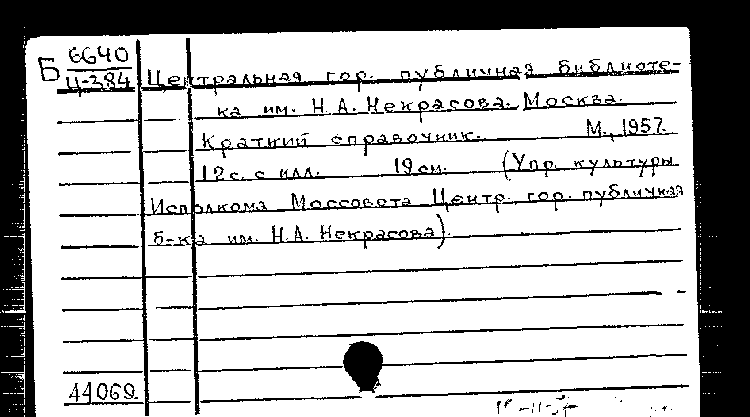 Б 6640
Ц-384 Центральная гор. публичная библиоте-
ка им. Н.А. Некрасова. Москва.
Краткий справочник. М., 1957.
12с. с илл. 19см. (Упр. культуры
Исполкома Моссовета Центр. гор. публичная
б-ка им. Н.А. Некрасова).
44069